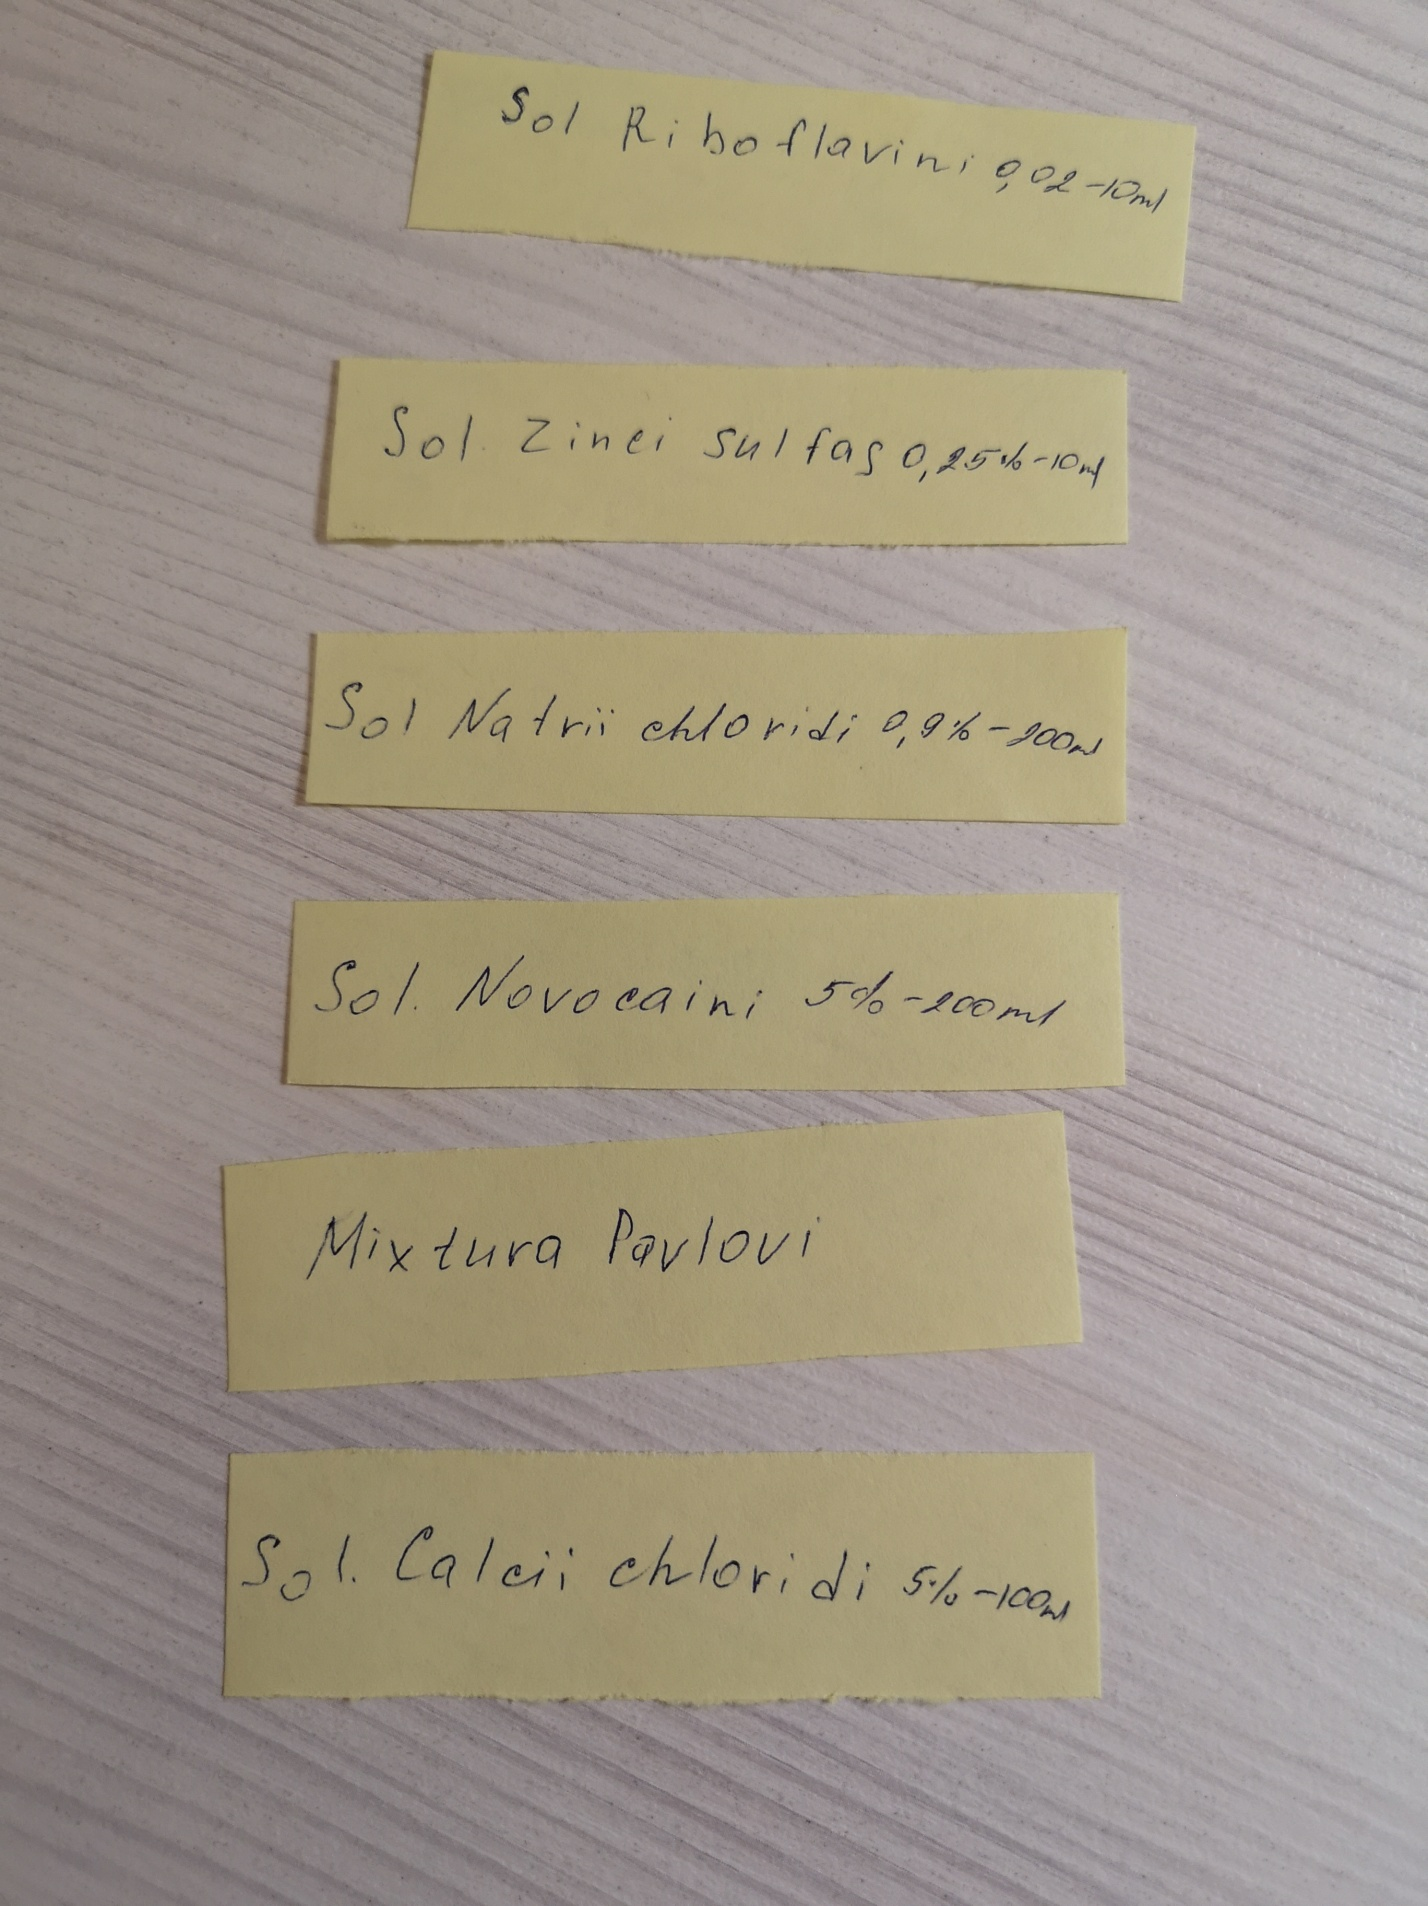 Sol Riboflavini 0,02-10ml
Sol. Zinci sulfas 0,25%-10ml
Sol Natrii chloridi 0,9%-200ml
Sol. Novocaini 5%-200ml
Mixtura Pavlovi
Sol. Calcii chloridi 5%-100ml